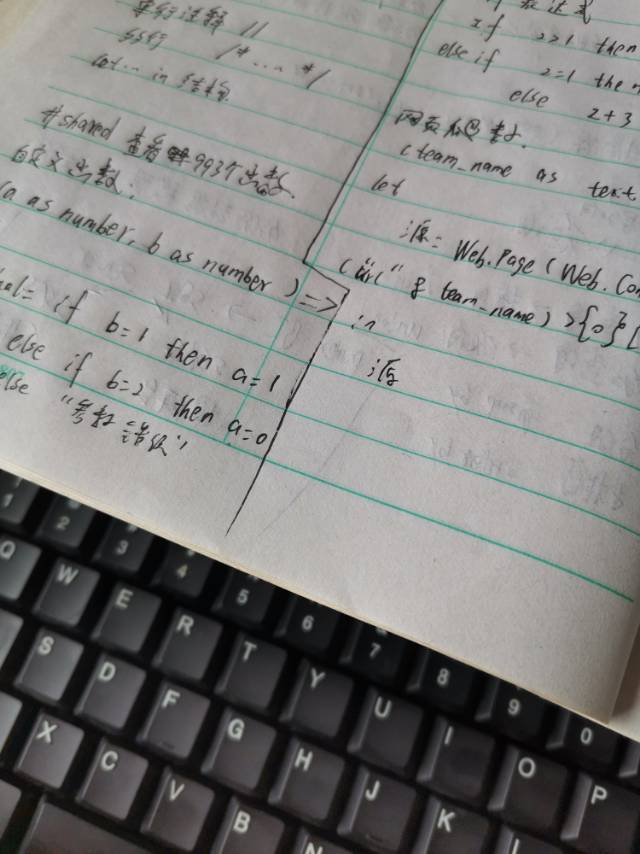 单行注释 //
多行 /*...*/
let... in 结构
#shared 查看993个函数
自定义函数:
(a as number, b as number) =>
if b=1 then a=1
else if b=2 then a=0
else "参数错误"
表达式
if 2>1 then
else if 2=1 then
else 2+3
网页函数.
(team_name as text
let
源= Web.Page(Web.Con
("url" & team_name)){0}[
in
源
1 2 3 4 5 6 7 8 9 0
Q W E R T Y U I O P
S D F G H J K L
X C V B N